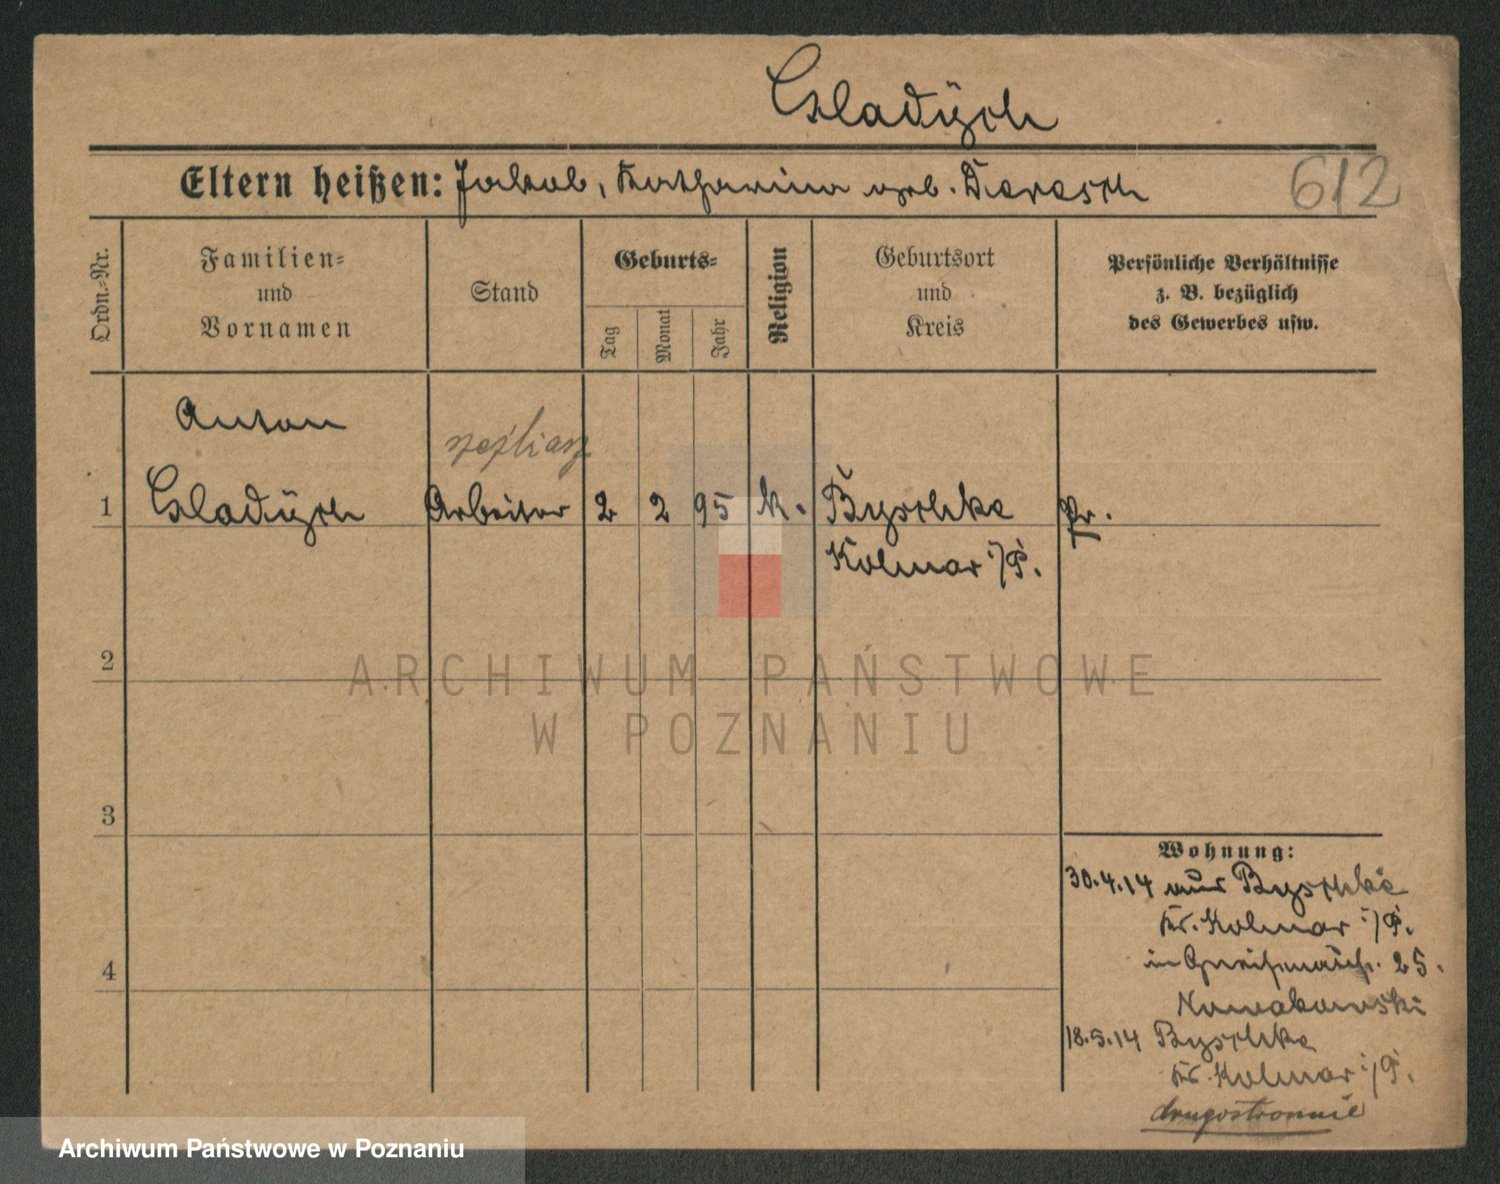 Gladÿsch
Eltern heißen: Jakob, Katharina geb. Darasch
612
Ordn.-Nr.
Familien-
und
Vornamen
Stand
Geburts-
Tag
Monat
Jahr
Religion
Geburtsort
und
Kreis
Persönliche Verhältnisse
z. B. bezüglich
des Gewerbes usw.
Anton
1 Gladÿsch Arbeiter 2 2 95 k. Byschke Pr.
Kolmar i/P.
2
3
4
Wohnung:
30.4.14 aus Byschke
Kr. Kolmar i/P.
in 25.
Nowakowski
18.5.14 Byschke
Kr. Kolmar i/P.
drugostronnie
ARCHIWUM PAŃSTWOWE
W POZNANIU
Archiwum Państwowe w Poznaniu